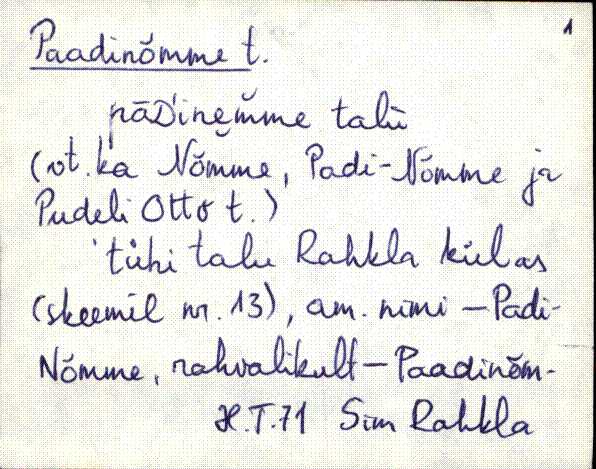 1
Paadinõmme t.
pāD'inemme talu
(vt. ka Nõmme, Padi-Nõmme ja
Pudeli Otto t.)
tühi talu Rahkla külas
(skeemil nr. 13), am. nimi – Padi-
Nõmme, rahvalikult – Paadinõm-
H.T. 71 Sim Rahkla